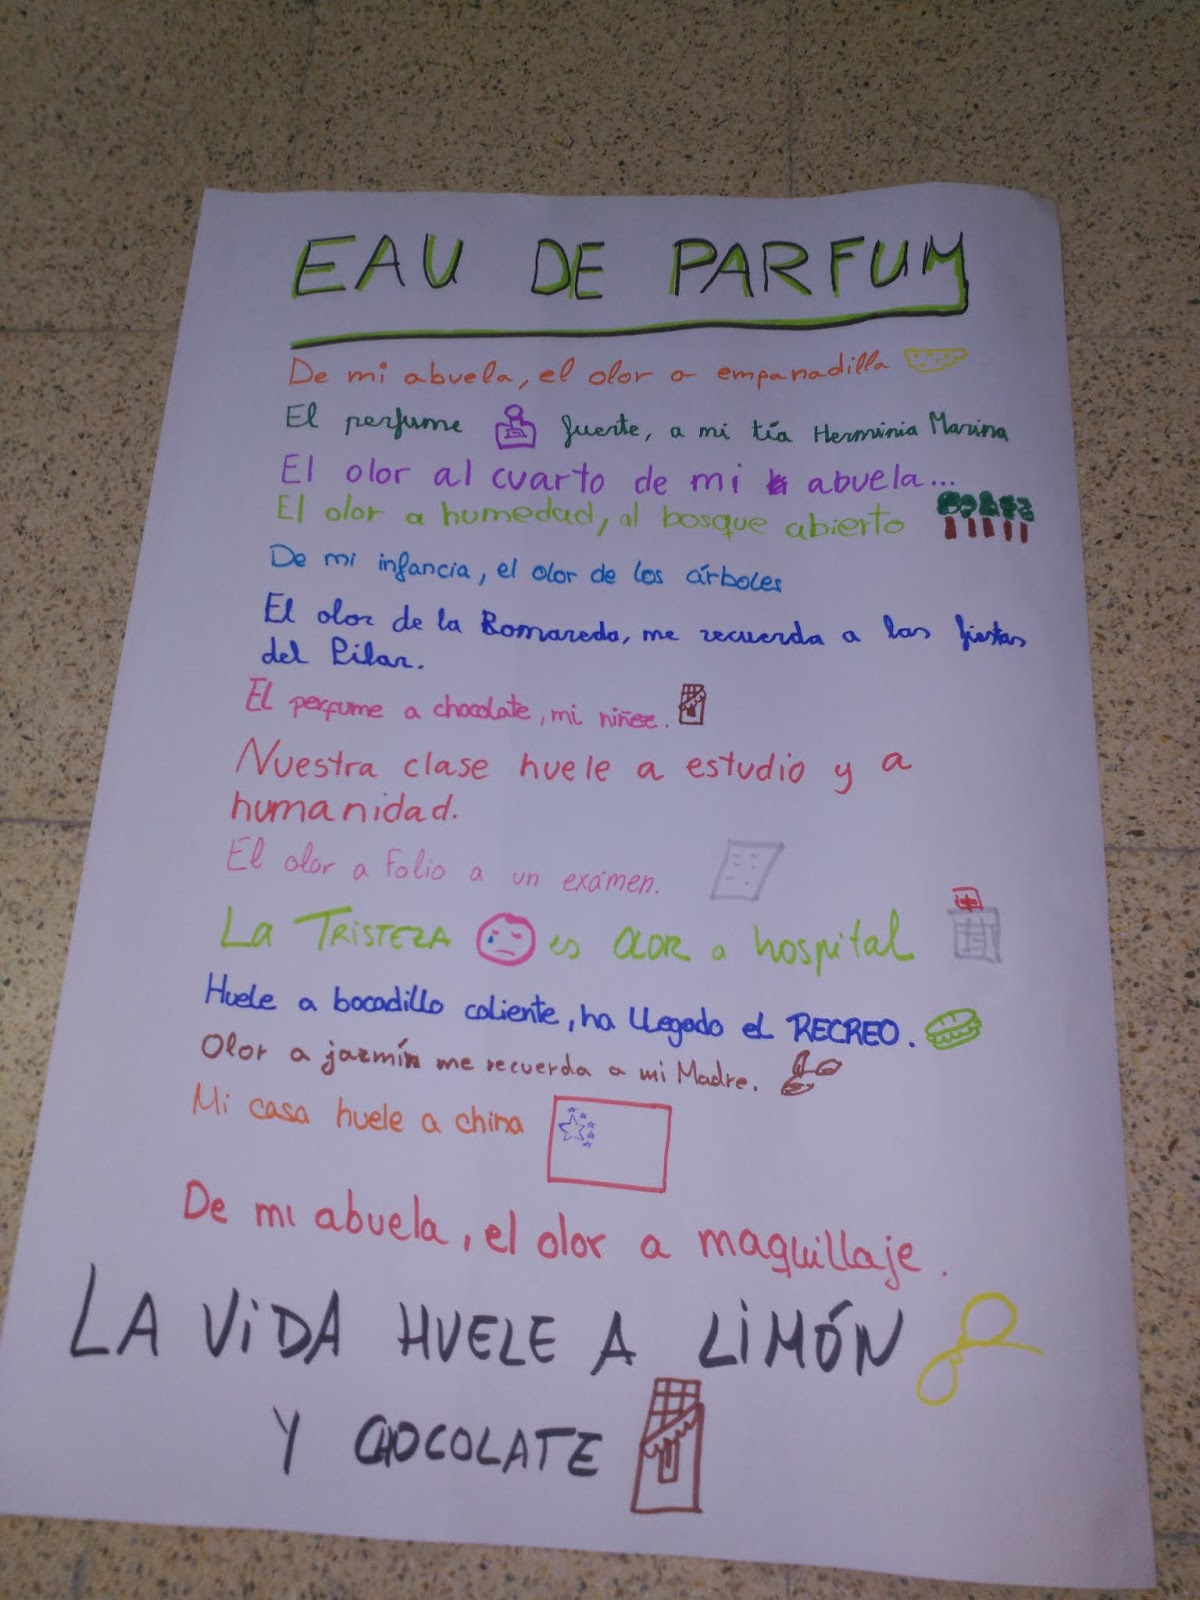 EAU DE PARFUM
De mi abuela, el olor a empanadilla
El perfume fuerte, a mi tía Herminia Marina
El olor al cuarto de mi abuela...
El olor a humedad, al bosque abierto
De mi infancia, el olor de los árboles
El olor de la Romareda, me recuerda a las fiestas
del Pilar.
El perfume a chocolate, mi niñez.
Nuestra clase huele a estudio y a
humanidad.
El olor a folio a un exámen.
La TRISTEZA es OLOR a hospital
Huele a bocadillo caliente, ha llegado el RECREO.
Olor a jazmín me recuerda a mi Madre.
Mi casa huele a china
De mi abuela, el olor a maquillaje.
LA ViDA HUELE A LiMÓN
Y CHOCOLATE